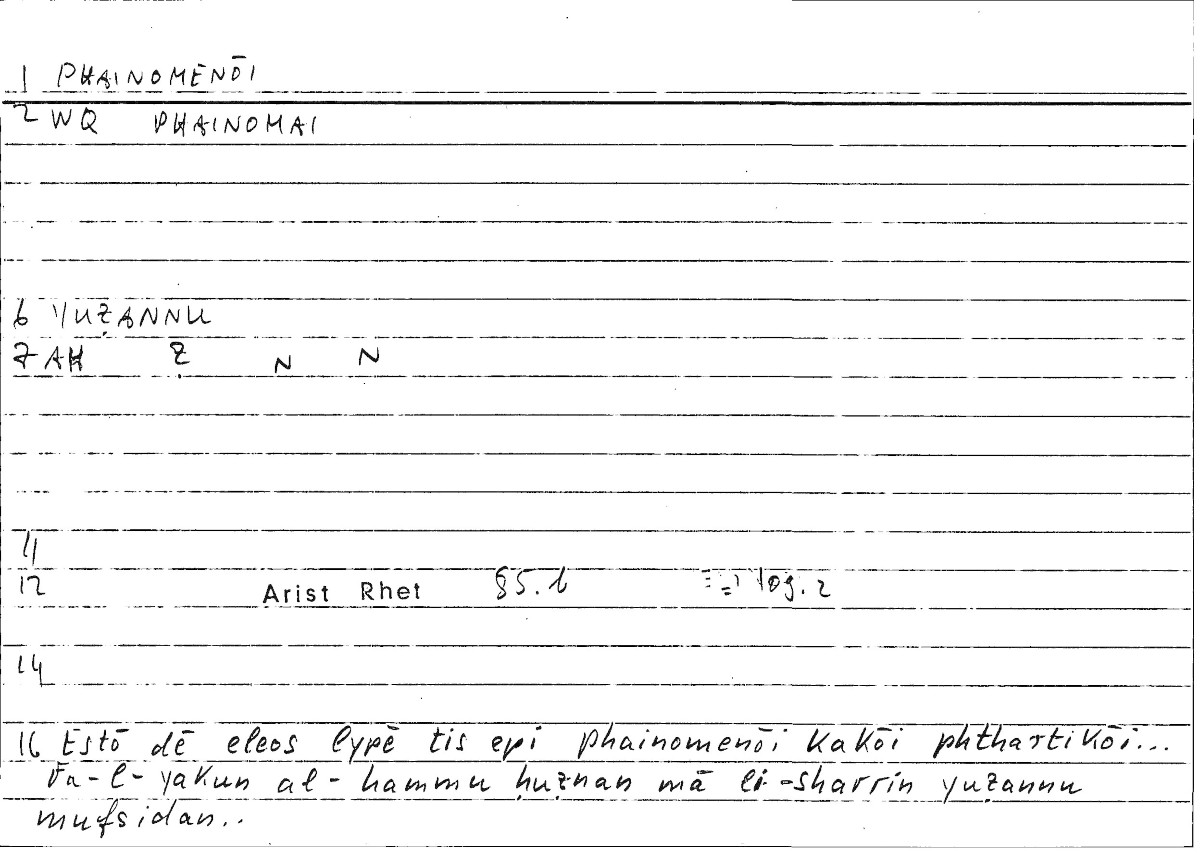 1 PHAINOMENŌI
2 WQ PHAINOMAI
6 YUẒANNU
7 AH Ẓ N N
11
12 Arist Rhet 85.b 109.2
14
16 Estō dē eleos lypē tis epi phainomenōi kakōi phthartikōi...
Fa-l-yakun al-hammu ḥuẓnan mā li-sharrin yuẓannu
mufsidan..